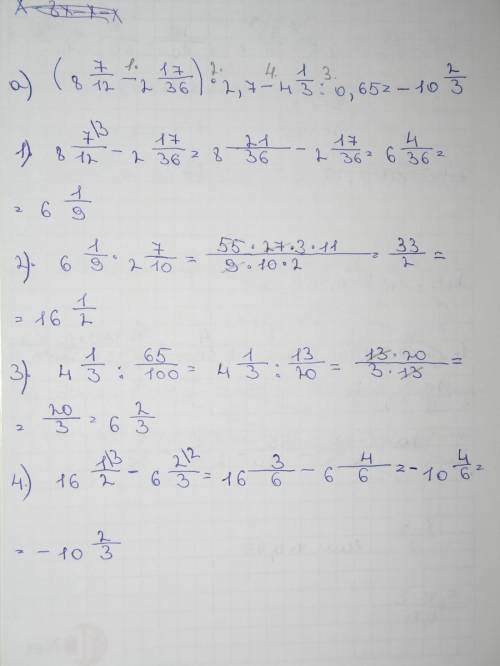 а) (8 7/12 - 2 17/36) · 2,7 - 4 1/3 : 0,65 = - 10 2/3
1.
2.
4.
3.
1) 8 7\3/12 - 2 17/36 = 8 21/36 - 2 17/36 = 6 4/36 =
= 6 1/9
2). 6 1/9 · 2 7/10 = 55 · 27 · 3 · 11/9 · 10 · 2 = 33/2 =
= 16 1/2
3). 4 1/3 : 65/100 = 4 1/3 : 13/20 = 13 · 20/3 · 13 =
= 20/3 = 6 2/3
4.) 16 1\3/2 - 6 2\2/3 = 16 3/6 - 6 4/6 = - 10 4/6 =
= - 10 2/3